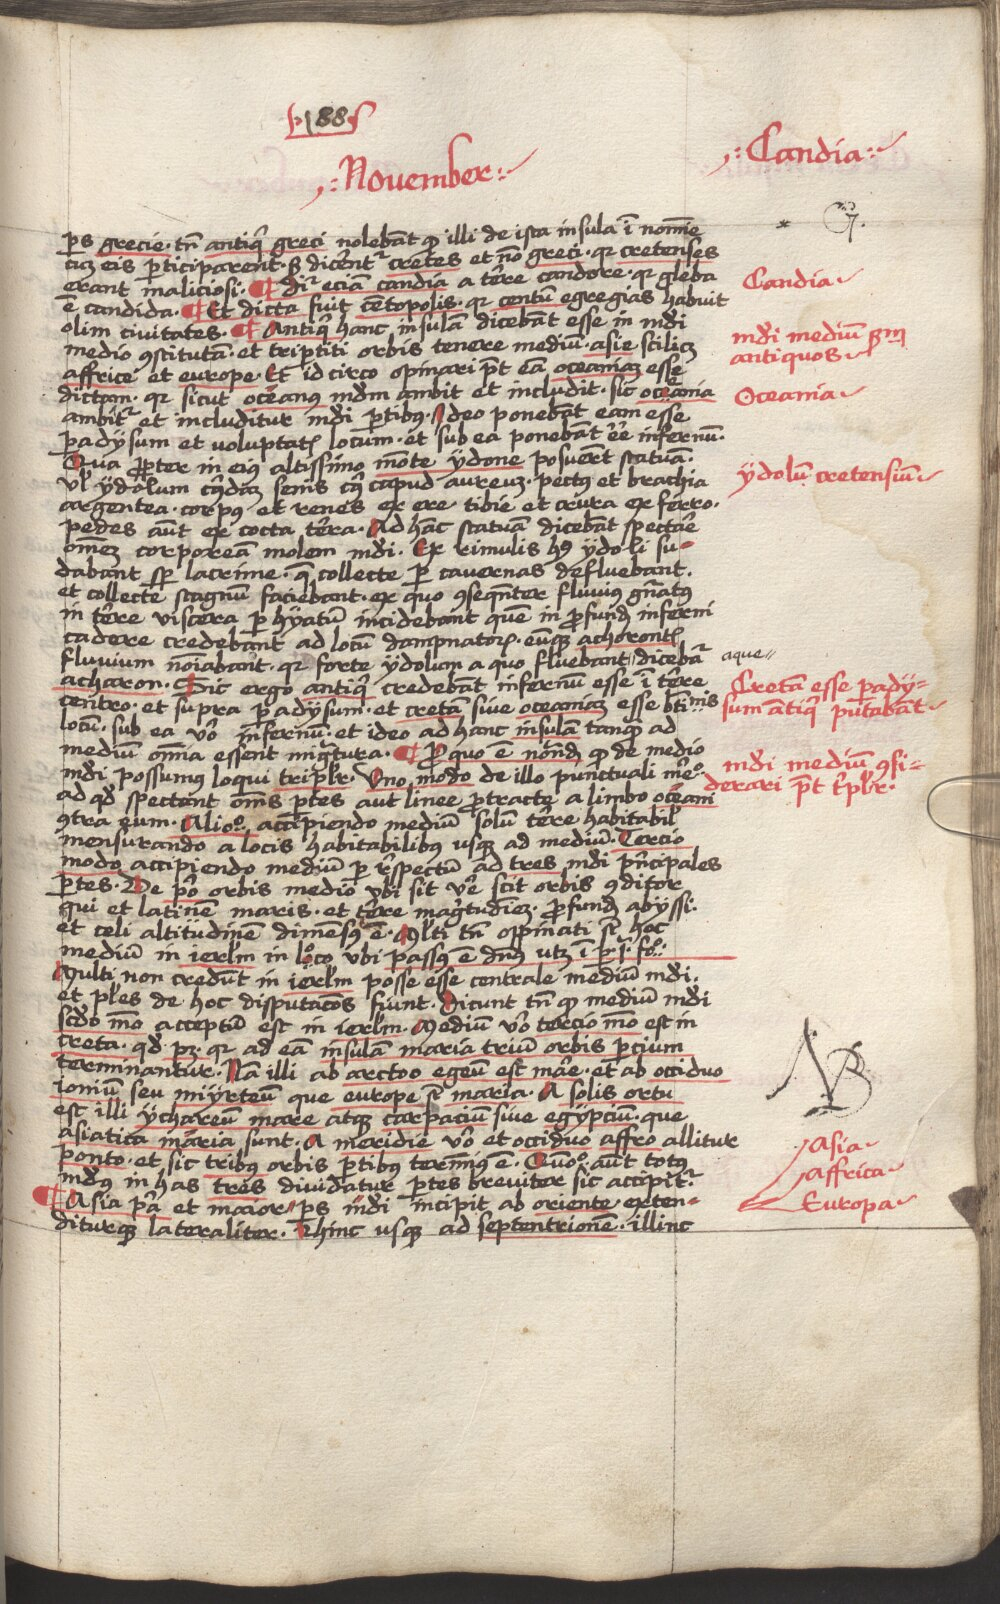 188
November
Candia
ps grecie · tn̄ antiqͥ greci nolebāt qͦ illi de ista insula ī nomīe
cuȝ eis ꝑticiparent · sꝫ dicerētͬ cretes et nō greci · qr cretenses
erant maliciosi · ¶ Dīr eciā candia a tērre candore · qr gleba
ē candida · ¶ Et dicta fuit cētopolis · qr centū egregias habuit
olim civitates · ¶ Antiqͥ hanc insulā dicebāt esse in mūdi
medio ꝯstitutā · et triptiti orbis tenere mediū · asie scilicȝ
affrice et europe · Et id circo opinari pn̄t eā oceaniaȝ esse
dictam · qr sicut oceanus mūdm ambit et includit · sic oceania
ambitͬ et includitur mūdi ꝑtibꝰ · Adeo ponebāt eam esse
padysum et voluptatꝭ locum · et sub ea ponebāt ēe infernū ·
Qua ꝓpter in eiꝰ altissimo mōte ydone posuert statuā ·
vl ydolum cuiꝰdā senis cuiꝰ capud aureuȝ · pectꝰ et brachia
argentea · corpꝰ et renes ex ere · tibie et crura ex ferro ·
pedes aūt ex cocta terra · Ad hāc statuā dicebāt spectare
omēȝ corporeā molem mūdi · Ex rimulis hꝰ ydoli su-
dabant sꝑ lacrime · q̄ collecte ꝑ cavernas defluebant ·
et collecte stagnū faciebant · ex quo ꝯseqnter fluviꝰ gn̄atꝰ
in terre viscera ꝑ hyatū incidebant quē in ꝓfundū inferni
cadere credebant ad locū dampnatorꝝ · eūqꝫ achorontē
fluvium noīabant · qr forte ydolum a quo fluebant dicebāͬ
aque
acharon · Sic ergo antiqͥ credebāt infernū esse ī terre
centro · et supra padysum · et cretā sive oceaniaȝ esse
locū · sub ea vͦo infernū · et ideo ad hanc insulā tanqͣ ad
mediū omīa essent migratura · ¶ Pro quo ē notandū qͦ de medio
mūdi possumꝰ loqui tripl̄r · Uno modo de illo punctuali
ad qd̄ spectant omēs ꝑtes aut linee ꝓtracte a limbo oceani
ꝯtra eum · Alioͦ accipiendo mediū solū terre habitabil
mensurando a locis habitabilibꝰ usqꝫ ad mediū · Tercio
modo accipiendo mediū ꝑ respectū ad tres mūdi pncipales
ꝑtes · De pͦo orbis medio vbi sit v̄e scit orbis ꝯditor
qui et latitudinē maris · et terre magtudiēȝ · ꝓfundū abyssi ·
et celi altitudinē dimensꝰ ē · Mlti tn̄ oppinati sūt hoc
mediū in ierl̄m in loco vbi passꝰ ē dn̄s
Multi non credūt in ierl̄m posse esse centrale mediū mūdi ·
et pl̄es de hoc disputacōes fiunt · Dicunt tn̄ qͦ mediū mūdi
scd̄o mͦo acceptū est in ierl̄m · Mediū vͦo tercio mͦo est in
creta · qd̄ pȝ · qr ad eā insulā maria triū orbis ꝑcium
terminantur · Nā illi ab arctoo egeū est māe · et ab occiduo
ioniū seu miyrteū que europe sūt maria · A solis ortu
est illi ychareū mare atqꝫ carpaciū sive egypciū · que
asiatica maria sunt · A maridie vͦo et occiduo affro allitur
ponto · et sic tribꝰ orbis ꝑtibꝰ termiꝰ ē · Quōͦ aūt totꝰ
mūdꝰ in has tres dividatur ꝑtes breviter sic accipitͬ ·
¶ Asia pͣ et maior ps mūdi incipit ab oriente · exten-
diturqꝫ lateraliter · Hinc usqꝫ ad septentrionē · illinc
Candia
mūdi mediū sm̄
antiquos
Oceania
ydolū cretensiū
Cretā esse pady-
sum ātiqͥ putabāt
mūdi mediū ꝯsi-
derari pn̄t tpl̄r ·
Asia
affrica
Europa